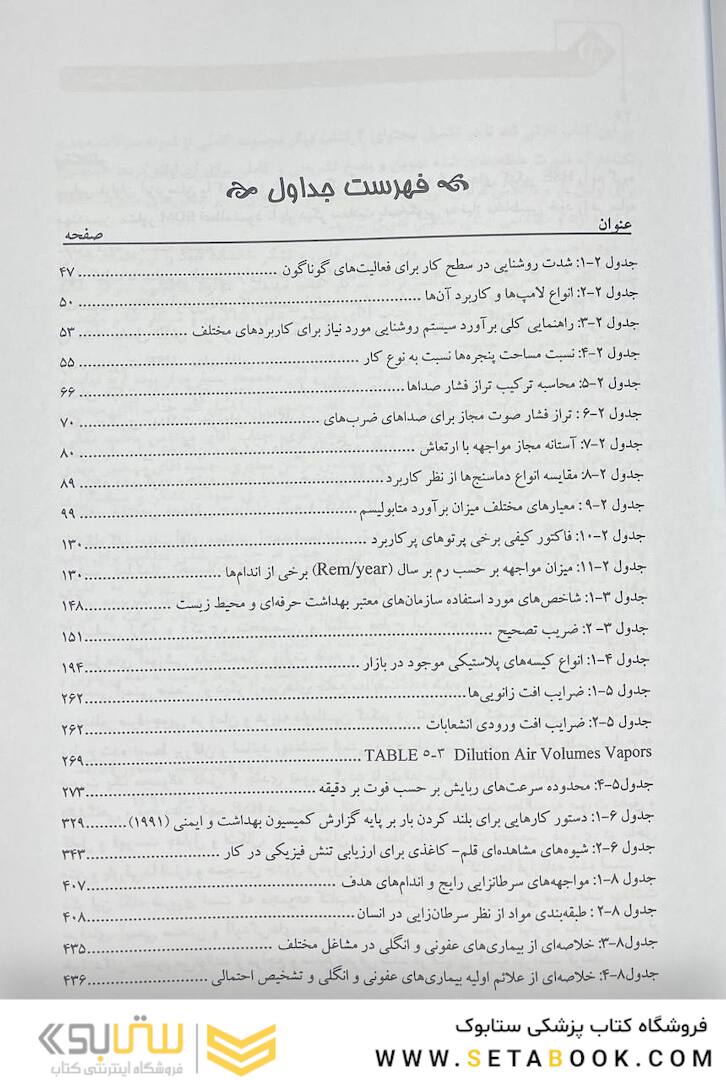 فهرست جداول
عنوان صفحه
جدول ۲-۱: شدت روشنایی در سطح کار برای فعالیت‌های گوناگون ................................ ۴۷
جدول ۲-۲: انواع لامپ‌ها و کاربرد آن‌ها ................................ ۵۰
جدول ۲-۳: راهنمایی کلی برآورد سیستم روشنایی مورد نیاز برای کاربردهای مختلف ................ ۵۳
جدول ۲-۴: نسبت مساحت پنجره‌ها نسبت به نوع کار ................................ ۵۵
جدول ۲-۵: محاسبه ترکیب تراز فشار صداها ................................ ۶۶
جدول ۲-۶: تراز فشار صوت مجاز برای صداهای ضربه‌ای ................................ ۷۰
جدول ۲-۷: آستانه مجاز مواجهه با ارتعاش ................................ ۸۰
جدول ۲-۸: مقایسه انواع دماسنج‌ها از نظر کاربرد ................................ ۸۹
جدول ۲-۹: معیارهای مختلف میزان برآورد متابولیسم ................................ ۹۹
جدول ۲-۱۰: فاکتور کیفی برخی پرتوهای پرکاربرد ................................ ۱۳۰
جدول ۲-۱۱: میزان مواجهه بر حسب رم بر سال (Rem/year) برخی از اندام‌ها ................ ۱۳۰
جدول ۳-۱: شاخص‌های مورد استفاده سازمان‌های معتبر بهداشت حرفه‌ای و محیط زیست ................ ۱۴۸
جدول ۳-۲: ضریب تصحیح ................................ ۱۵۱
جدول ۴-۱: انواع کیسه‌های پلاستیکی موجود در بازار ................................ ۱۹۴
جدول ۵-۱: ضرایب افت زانویی‌ها ................................ ۲۶۲
جدول ۵-۲: ضرایب افت ورودی انشعابات ................................ ۲۶۲
TABLE ۵-۳ Dilution Air Volumes Vapors ................................ ۲۶۹
جدول۵-۴: محدوده سرعت‌های ربایش بر حسب فوت بر دقیقه ................................ ۲۷۳
جدول ۶-۱: دستور کارهایی برای بلند کردن بار بر پایه گزارش کمیسیون بهداشت و ایمنی (۱۹۹۱) ......... ۳۲۹
جدول ۶-۲: شیوه‌های مشاهده‌ای قلم- کاغذی برای ارزیابی تنش فیزیکی در کار ................ ۳۴۳
جدول ۸-۱: مواجهه‌های سرطانزایی رایج و اندام‌های هدف ................................ ۴۰۷
جدول ۸-۲: طبقه‌بندی مواد از نظر سرطان‌زایی در انسان ................................ ۴۰۸
جدول۸-۳: خلاصه‌ای از بیماری‌های عفونی و انگلی در مشاغل مختلف ................................ ۴۳۵
جدول۸-۴: خلاصه‌ای از علائم اولیه بیماری‌های عفونی و انگلی و تشخیص احتمالی ................ ۴۳۶
فروشگاه کتاب پزشکی ستابوک
WWW.SETABOOK.COM
ستابوک
فروشگاه اینترنتی کتاب